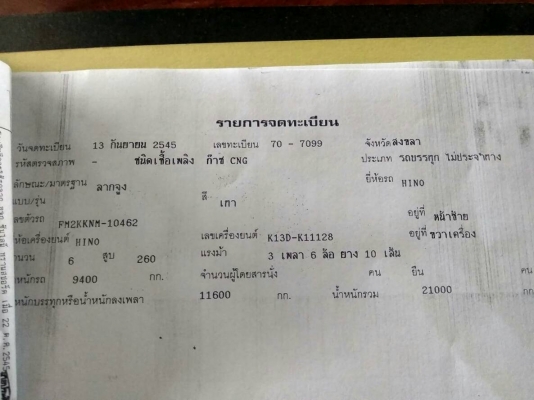 รายการจดทะเบียน
วันจดทะเบียน 13 กันยายน 2545 เลขทะเบียน 70 - 7099 จังหวัด สงขลา
รหัสตรวจสภาพ - ชนิดเชื้อเพลิง ก๊าซ CNG ประเภท รถบรรทุก ไม่ประจำทาง
ลักษณะ/มาตรฐาน ลากจูง ยี่ห้อรถ HINO
แบบ/รุ่น สี เทา
เลขตัวรถ FM2KKNM-10462 อยู่ที่ หน้าซ้าย
ห้อเครื่องยนต์ HINO เลขเครื่องยนต์ K13D-K11128 อยู่ที่ ขวาเครื่อง
านวน 6 สูบ 260 แรงม้า 3 เพลา 6 ล้อ ยาง 10 เส้น
หนักรถ 9400 กก. จำนวนผู้โดยสารนั่ง คน ยืน คน
หนักบรรทุกหรือน้ำหนักลงเพลา 11600 กก. น้ำหนักรวม 21000 กก.